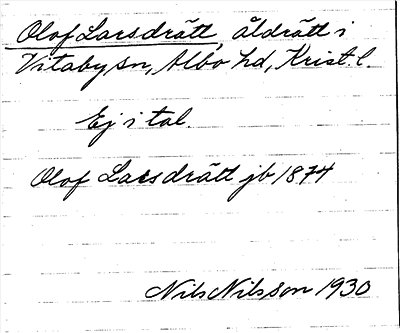 Olof Larsdrätt, åldrätt i
Vitaby sn, Albo hd, Krist. l.
Ej i tal.
Olof Larsdrätt jb 1874
Nils Nilsson 1930